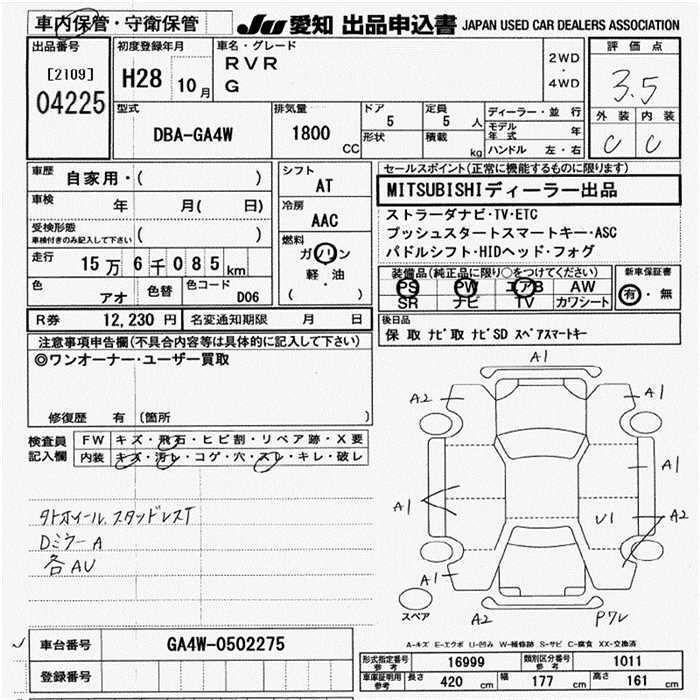 車内保管・守衛保管
JU 愛知 出品申込書 JAPAN USED CAR DEALERS ASSOCIATION
出品番号
[2109]
04225
初度登録年月
H28 10月
車名・グレード
RVR
G
2WD
・
4WD
評価点
3.5
外装 内装
C C
型式
DBA-GA4W
排気量
1800 CC
ドア
5
形状
定員
5 人
積載
kg
ディーラー・並行
モデル年式 年
ハンドル 左・右
車歴
自家用・( )
車検
年 月( 日)
受検形態
車検付きのみ記入して下さい ( )
走行
15万6千085km
色
アオ
色替
色コード
D06
シフト
AT
冷房
AAC
燃料
ガソリン
軽・油
( ・ )
セールスポイント(正常に機能するものに限ります)
MITSUBISHIディーラー出品
ストラーダナビ・TV・ETC
プッシュスタートスマートキー・ASC
パドルシフト・HIDヘッド・フォグ
装備品(純正品に限り○をつけてください)
PS PW エアB AW
SR ナビ TV カワシート
新車保証書
有・無
R券 12,230円
名変通知期限 月 日
後日品
保 取 ナビ取 ナビSD スペアスマートキー
注意事項申告欄(不具合内容等は具体的に記入して下さい)
◎ワンオーナー・ユーザー買取
修復歴 有 (箇所 )
検査員記入欄
FW キズ・飛石・ヒビ割・リペア跡・X要
内装 キズ・汚レ・コゲ・穴・スレ・キレ・破レ
タトホイール.スタッドレスT
Dミラー A
各AU
A1
A2
A1
A1
A1
U1
A2
A1
スペア
A2
Pワレ
A-キズ E-エクボ U-凹み W-補修跡 S-サビ C-腐食 XX-交換済
車台番号 GA4W-0502275
登録番号
形式指定番号 参考 16999
類別区分番号 参考 1011
車庫証明用 参考 長さ 420 cm 幅 177 cm 高さ 161 cm